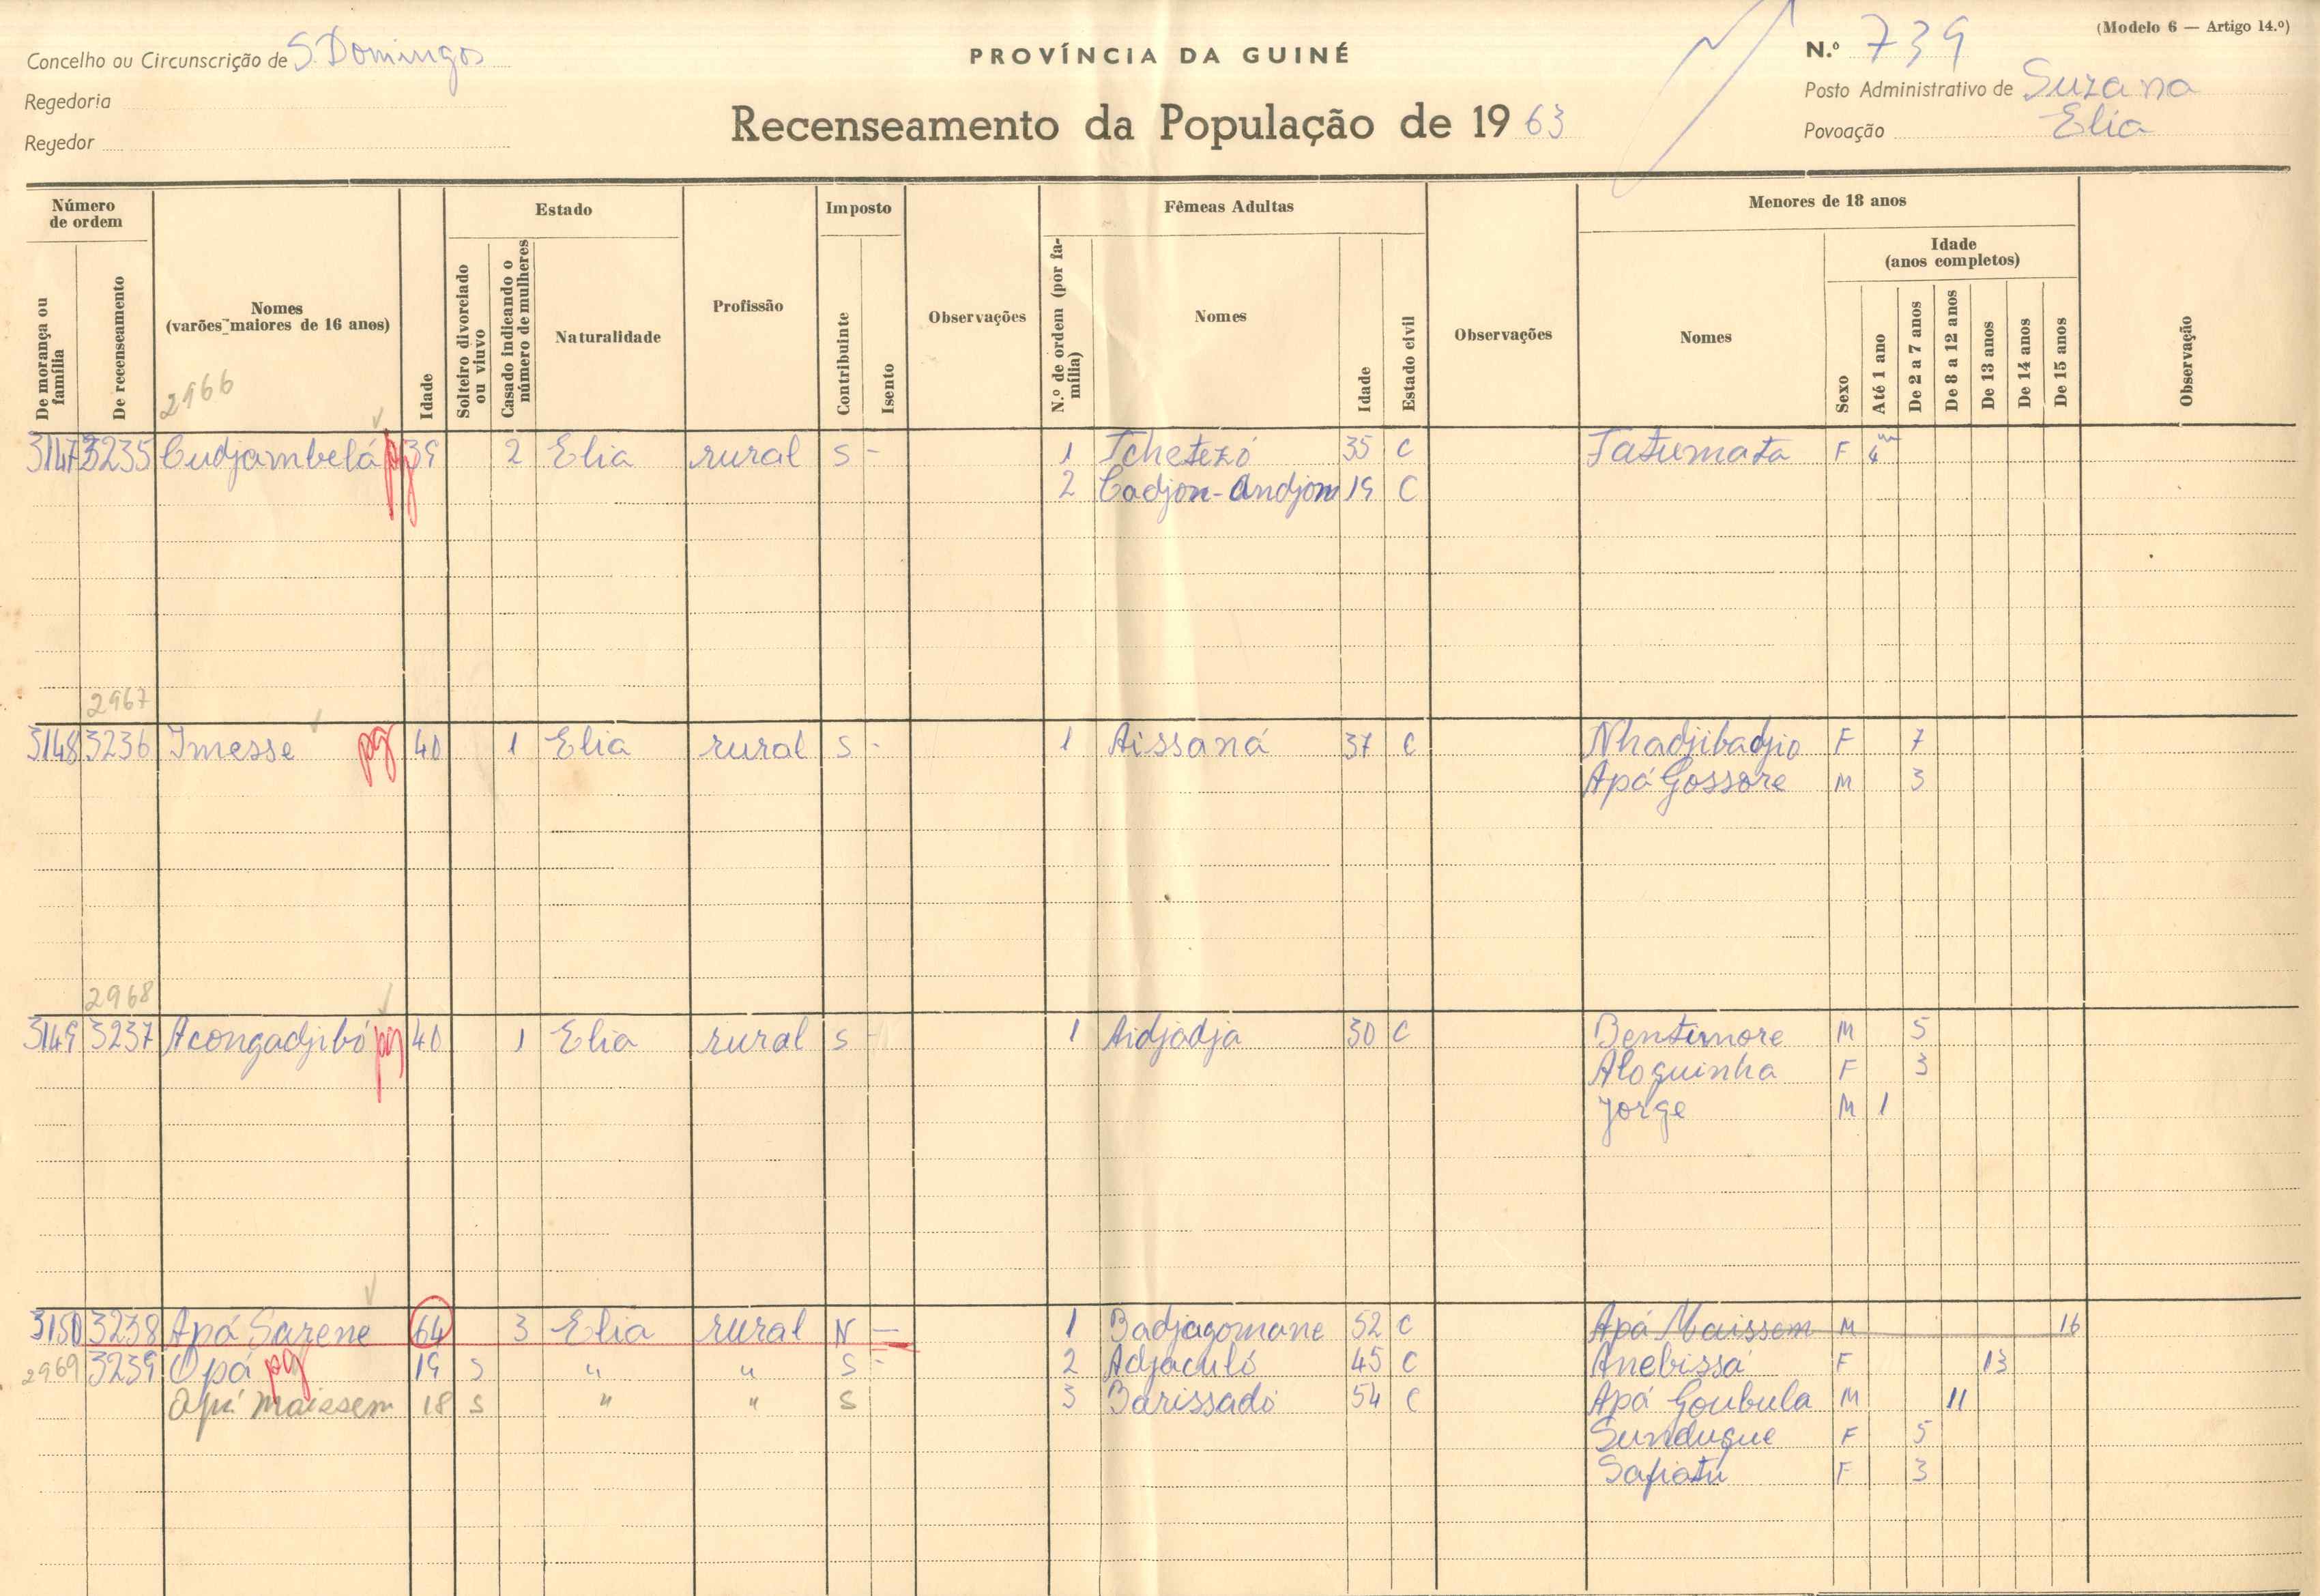 (Modelo 6 — Artigo 14.º)
Concelho ou Circunscrição de S. Domingos
PROVÍNCIA DA GUINÉ
N.º 739
Regedoria
Posto Administrativo de Suzana
Regedor
Recenseamento da População de 1963
Povoação Elia
Número de ordem
Estado
Imposto
Fêmeas Adultas
Menores de 18 anos
Idade (anos completos)
De morança ou família
De recenseamento
Nomes (varões maiores de 16 anos)
Idade
Solteiro divorciado ou viuvo
Casado indicando o número de mulheres
Naturalidade
Profissão
Contribuinte
Isento
Observações
N.º de ordem (por família)
Nomes
Idade
Estado civil
Observações
Nomes
Sexo
Até 1 ano
De 2 a 7 anos
De 8 a 12 anos
De 13 anos
De 14 anos
De 15 anos
Observação
2966
3147 3235 Cudjambelá pg 39 2 Elia rural S - 1 Tchetezó 35 C Fatumata F 4 m
2 Cadjon-Andjom 19 C
2967
3148 3236 Imesse pg 40 1 Elia rural S - 1 Aissaná 37 C Nhadjibadjio F 7
Apá Gossore M 3
2968
3149 3237 Acongadjibó pg 40 1 Elia rural S - 1 Aidjadja 30 C Bentimore M 5
Aloquinha F 3
Jorge M 1
3150 3238 Apá Sarene 64 3 Elia rural N — 1 Badjagomane 52 C Apá Maissem M 16
2969 3239 Opá pg 19 S " " S - 2 Adjaculó 45 C Anebissa F 13
Apá Maissem 18 S " " S 3 Barissadó 54 C Apá Goubula M 11
Sunduque F 5
Safiatu F 3